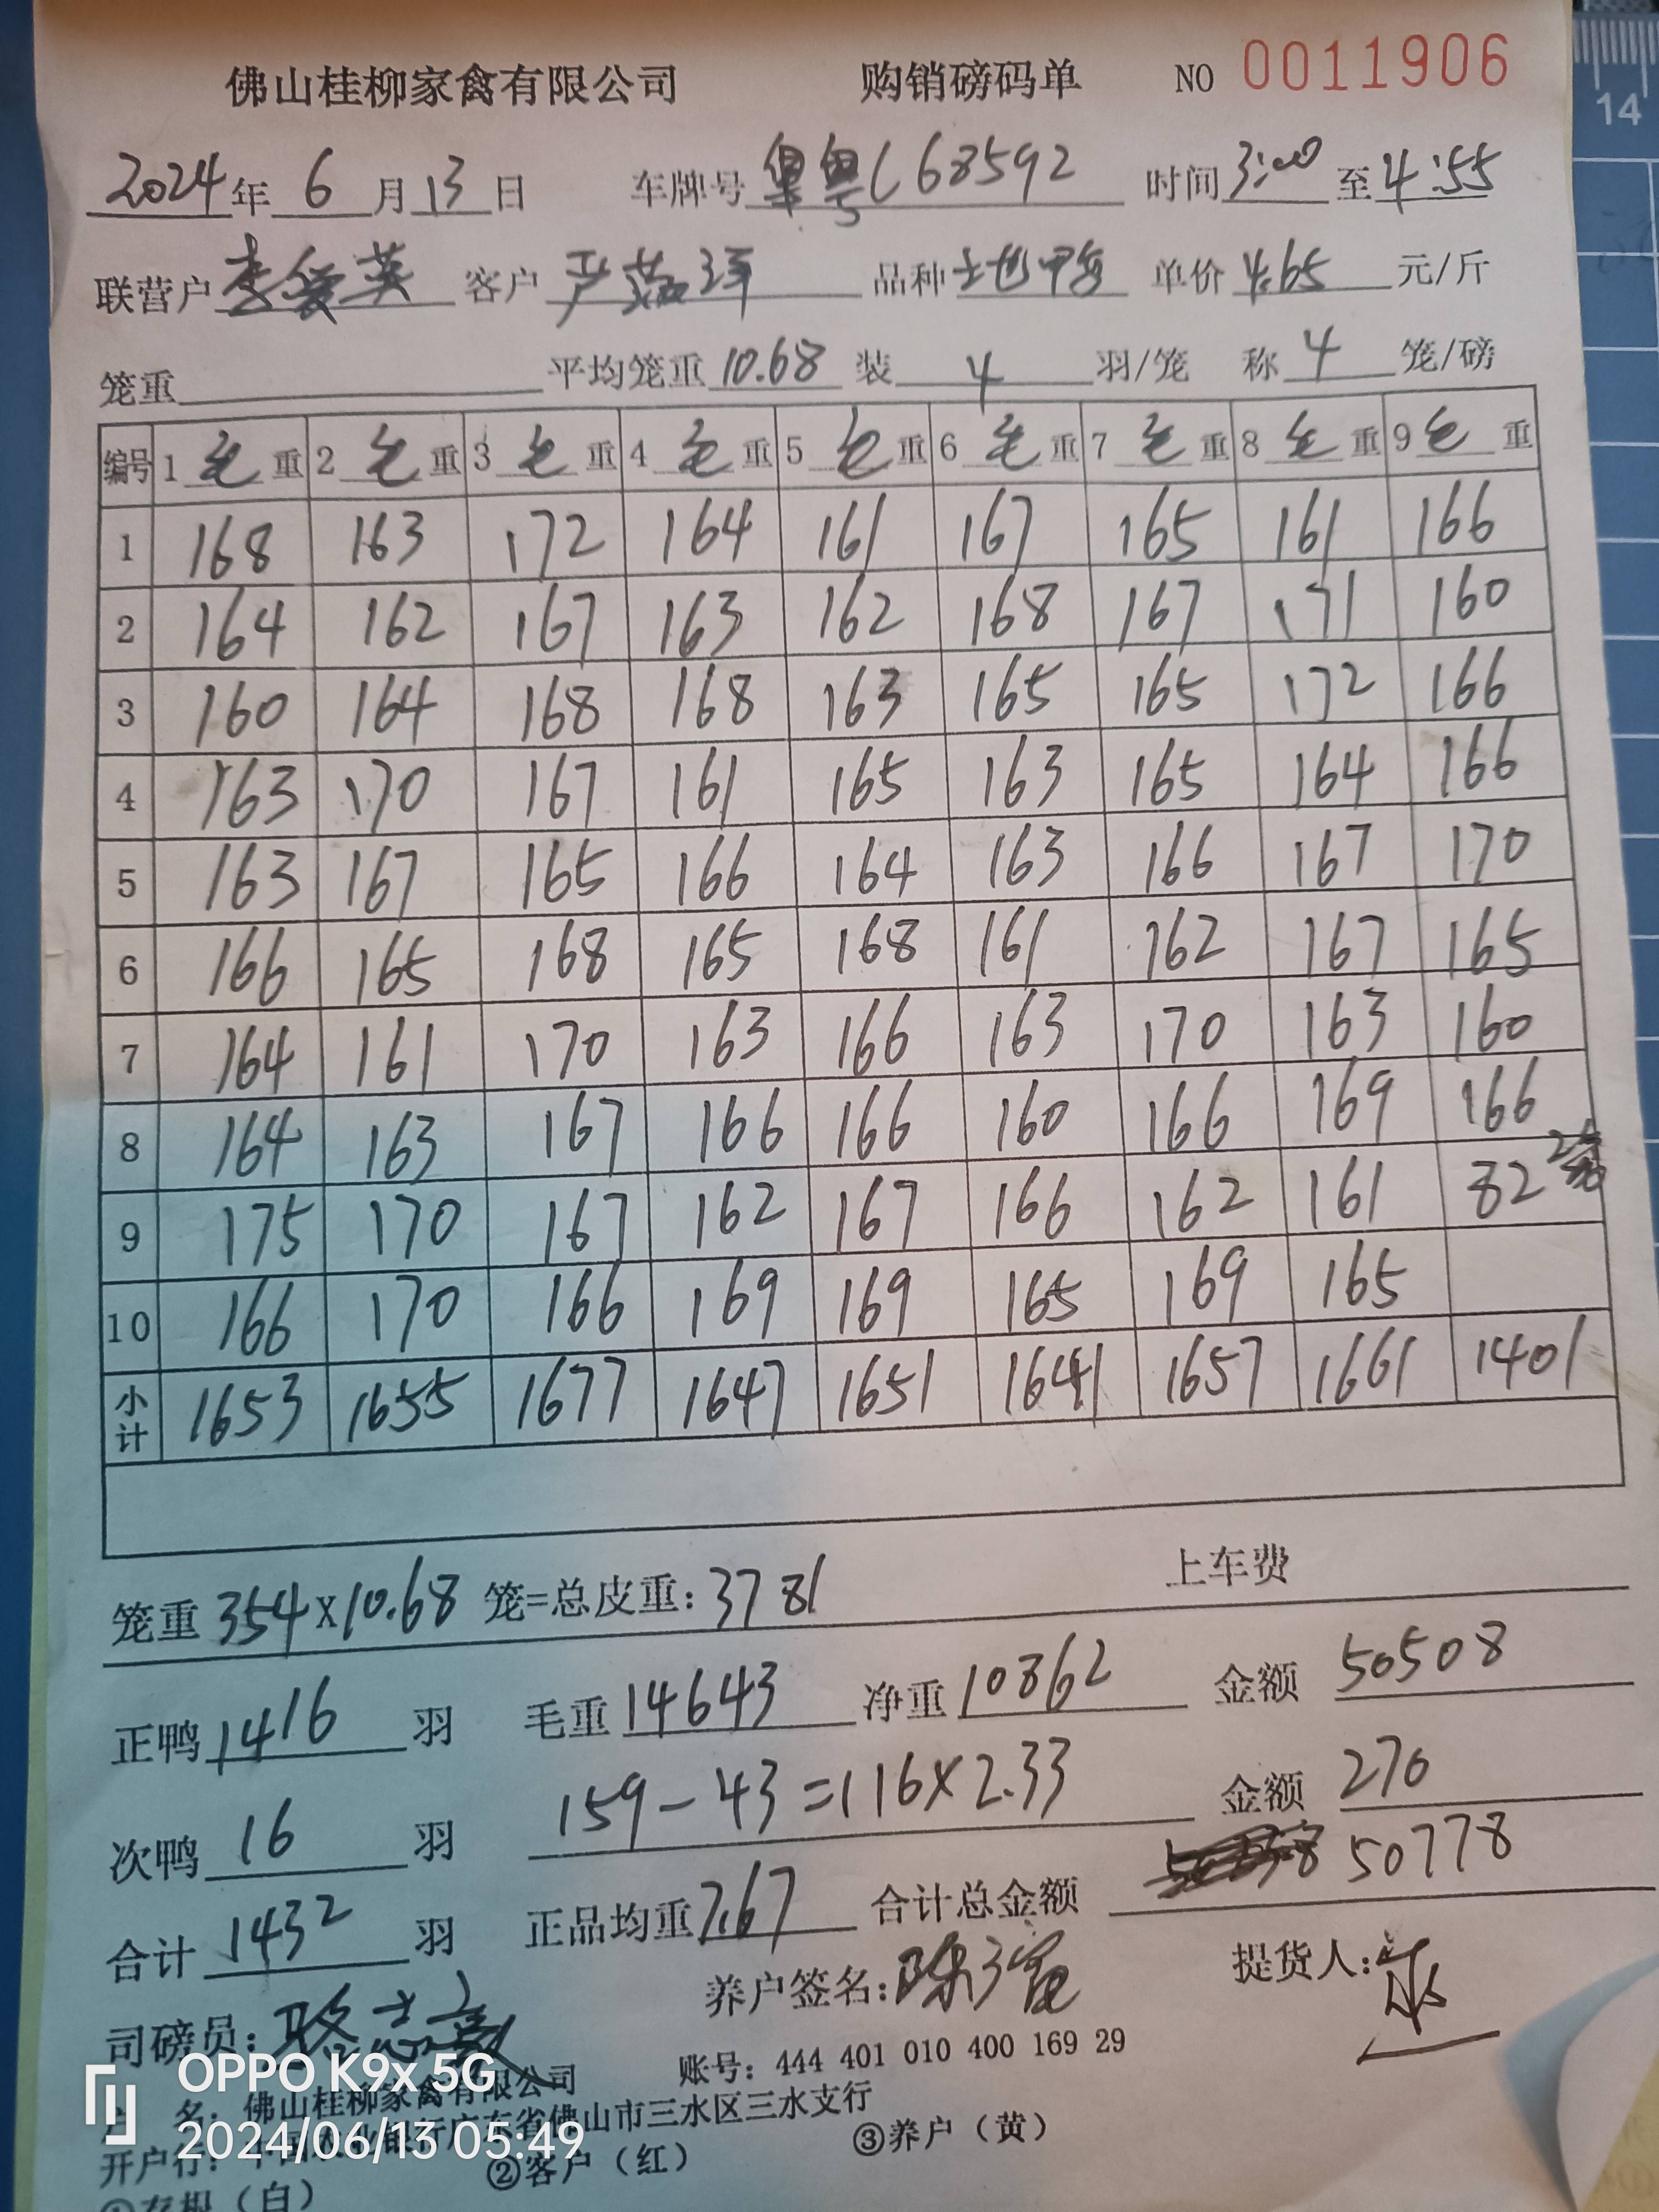 佛山桂柳家禽有限公司 购销磅码单 NO 0011906
2024年 6 月 13 日 车牌号 粤C68592 时间 3:00 至 4:55
联营户 李爱英 客户 严 品种 土地鸭 单价 4.65 元/斤
笼重 平均笼重 10.68 装 4 羽/笼 称 4 笼/磅
编号 1 毛 重 2 毛 重 3 毛 重 4 毛 重 5 毛 重 6 毛 重 7 毛 重 8 毛 重 9 毛 重
1 168 163 172 164 161 167 165 161 166
2 164 162 167 163 162 168 167 171 160
3 160 164 168 168 163 165 165 172 166
4 163 170 167 161 165 163 165 164 166
5 163 167 165 166 164 163 166 167 170
6 166 165 168 165 168 161 162 167 165
7 164 161 170 163 166 163 170 163 160
8 164 163 167 166 166 160 166 169 166
9 175 170 167 162 167 166 162 161 82 2笼
10 166 170 166 169 169 165 169 165
小计 1653 1655 1677 1647 1651 1641 1657 1661 1401
笼重 354 X 10.68 笼=总皮重: 3781 上车费
正鸭 1416 羽 毛重 14643 净重 10862 金额 50508
次鸭 16 羽 159-43=116×2.33 金额 270
合计 1432 羽 正品均重 7.67 合计总金额 50778
司磅员: 骆志 养户签名: 陈 提货人:
账号: 444 401 010 400 169 29
户 名: 佛山桂柳家禽有限公司
开户行: 中国农业银行广东省佛山市三水区三水支行
①存根（白） ②客户（红） ③养户（黄）
OPPO K9x 5G
2024/06/13 05:49
14